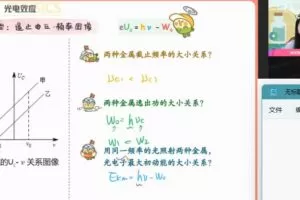 光电效应
遏止电压-频率图像
eUc = hν - W₀
Uc
甲
乙
ν₀
ν
的Uc-ν关系图像
两种金属截止频率的大小关系?
νc1 < νc2
两种金属逸出功的大小关系?
W₀ = hνc
W₁ < W₂
用同一频率的光照射两种金属,
光电子最大初动能的大小关系?
Ekm = hν - W₀
无标题
文件
编辑